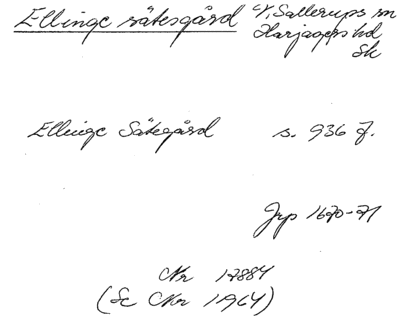 Ellinge sätesgård V. Sallerups sn
Harjagers hd
Sk
Ellinge Sätegård s. 936 f.
Jrp 1670-71
Nr 17884
(Se Nr 1964)